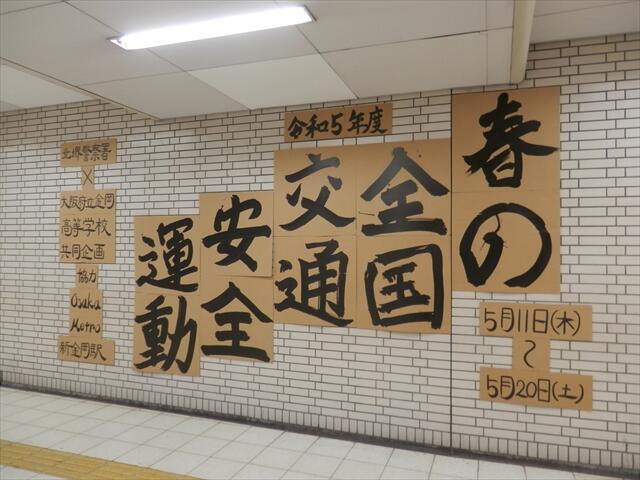 令和5年度
春の
全国
交通
安全
運動
5月11日(木)
～
5月20日(土)
北堺警察署
×
大阪府立金岡
高等学校
共同企画
協力
Osaka
Metro
新金岡駅